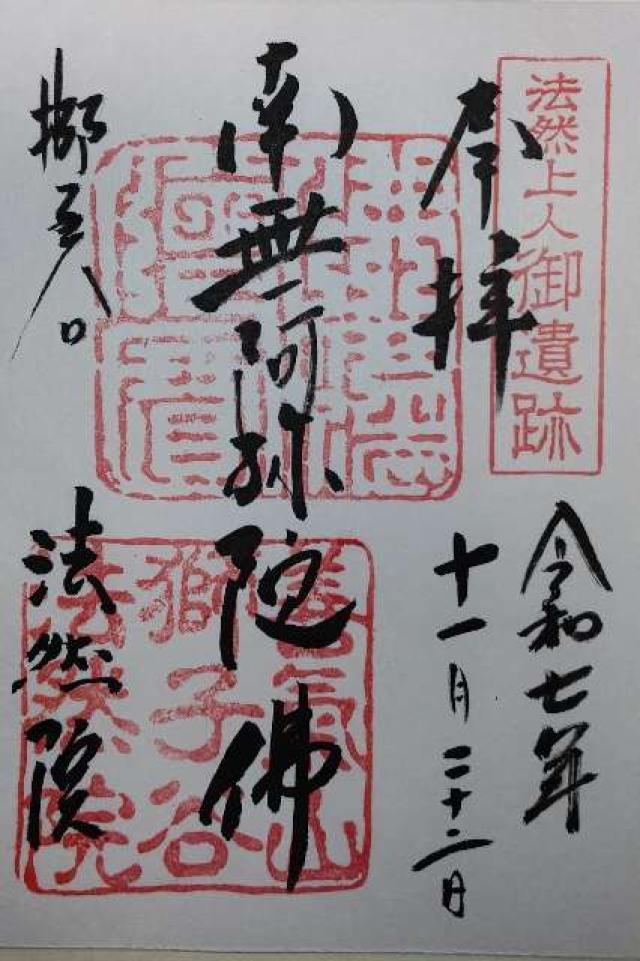 法然上人御遺跡
奉拝
令和七年
十一月二十二日
南無阿弥陀佛
善氣山
獅子谷
法然院
法然院